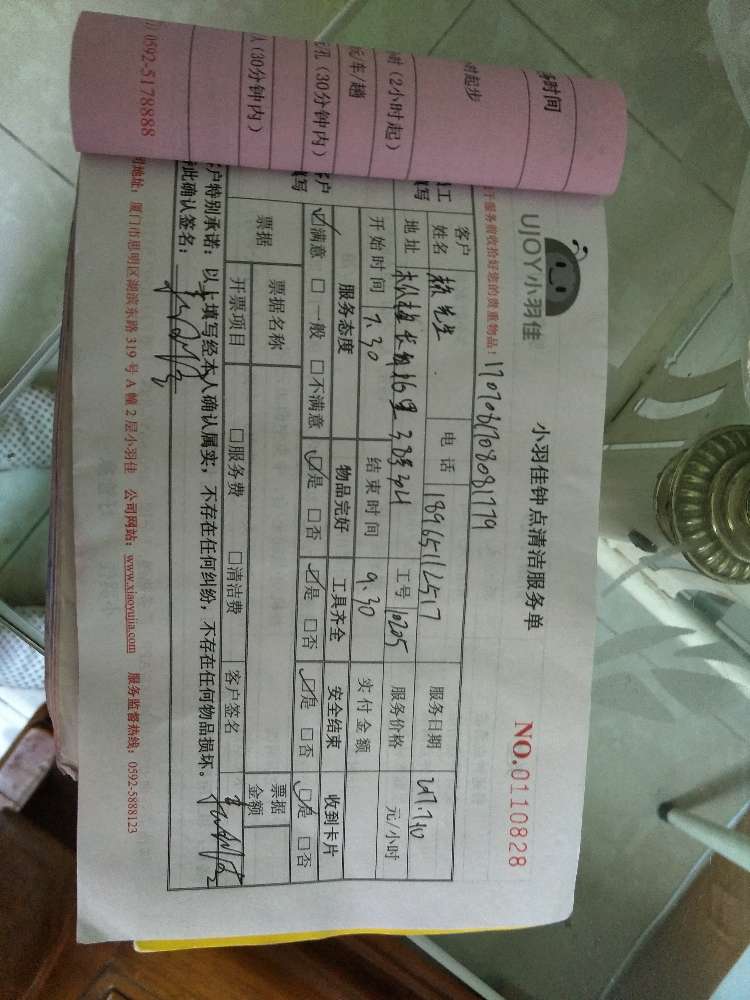 时间
时起步
时 (2小时起)
元/车/趟
孔 (30分钟内)
(30分钟内)
0592-5178888
UJOY小羽佳
小羽佳钟点清洁服务单
NO.0110828
服务前收拾好您的贵重物品!
客户姓名
电话 18965112517
服务日期
地址
工号 10205
服务价格 元/小时
开始时间 7.30 结束时间 9.30 实付金额
服务态度 物品完好 工具齐全 安全结束 收到卡片
☑满意 □一般 □不满意 ☑是 □否 ☑是 □否 ☑是 □否 ☑是 □否
票据 票据名称 票据金额
开票项目 □服务费 □清洁费 客户签名
户特别承诺:以上填写经本人确认属实,不存在任何纠纷,不存在任何物品损坏。
此确认签名:
地址:厦门市思明区湖滨东路 319 号 A 幢 2 层小羽佳 公司网站:www.xiaoyujia.com 服务监督热线:0592-5888123